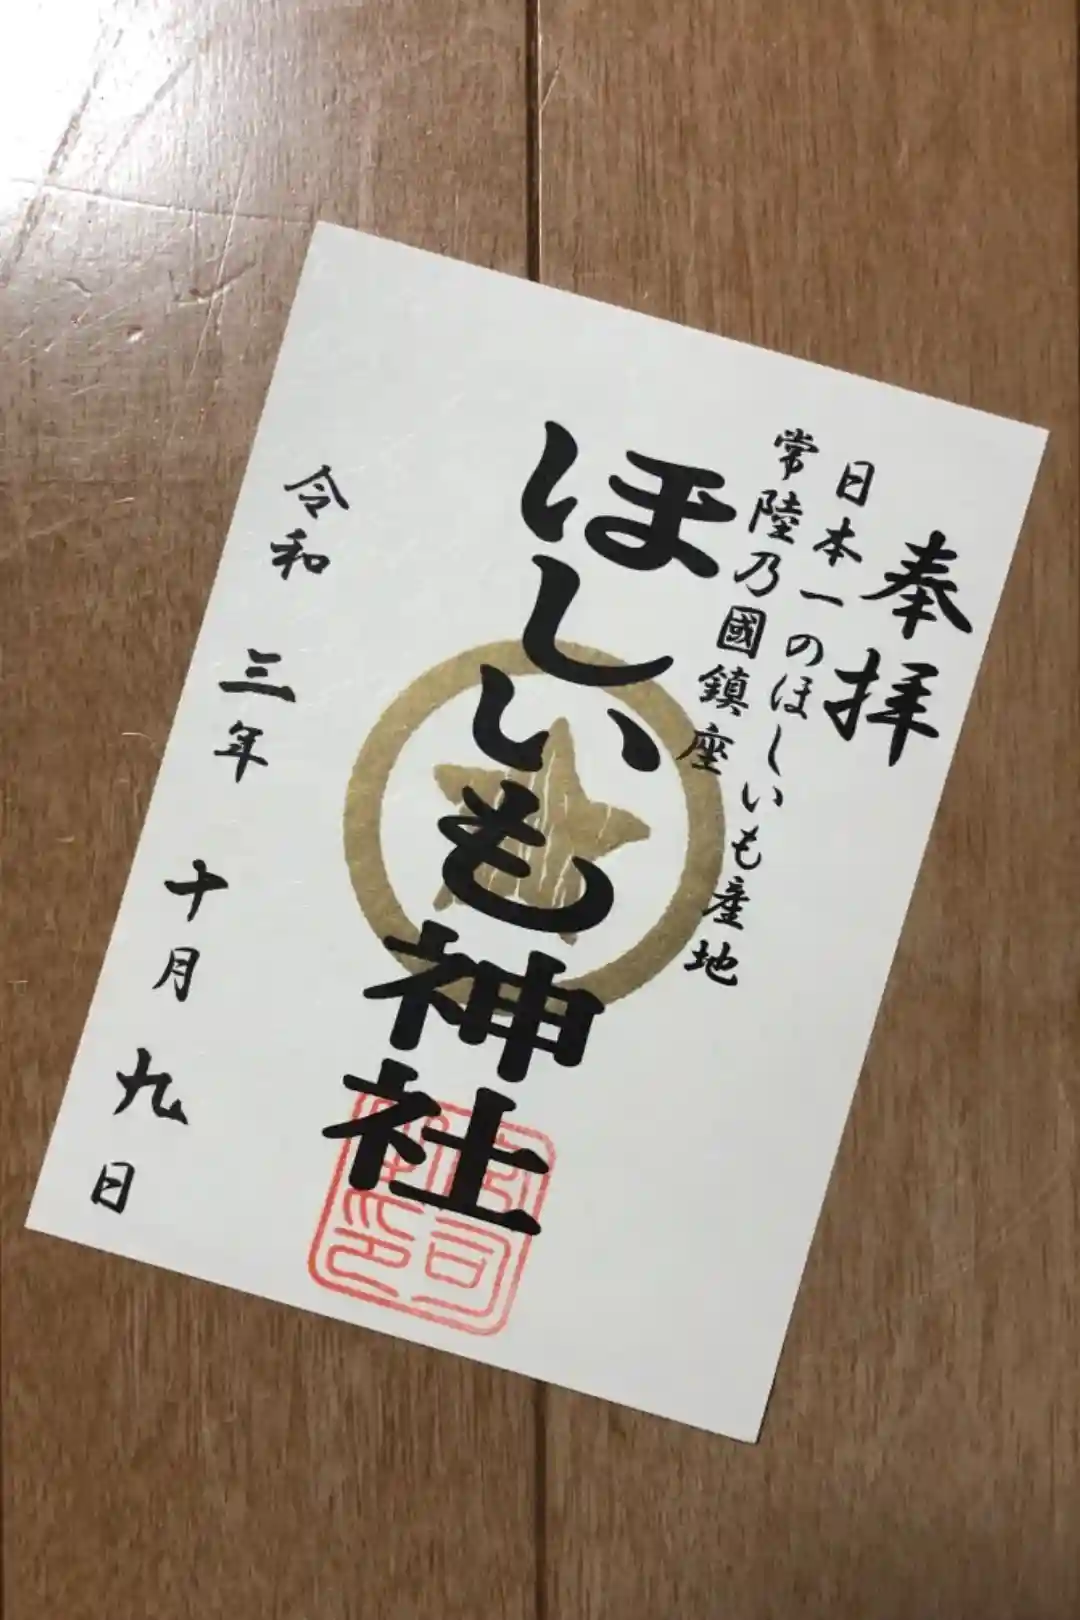 奉拝
日本一のほしいも産地
常陸乃國鎮座
ほしいも神社
令和 三年 十月 九日